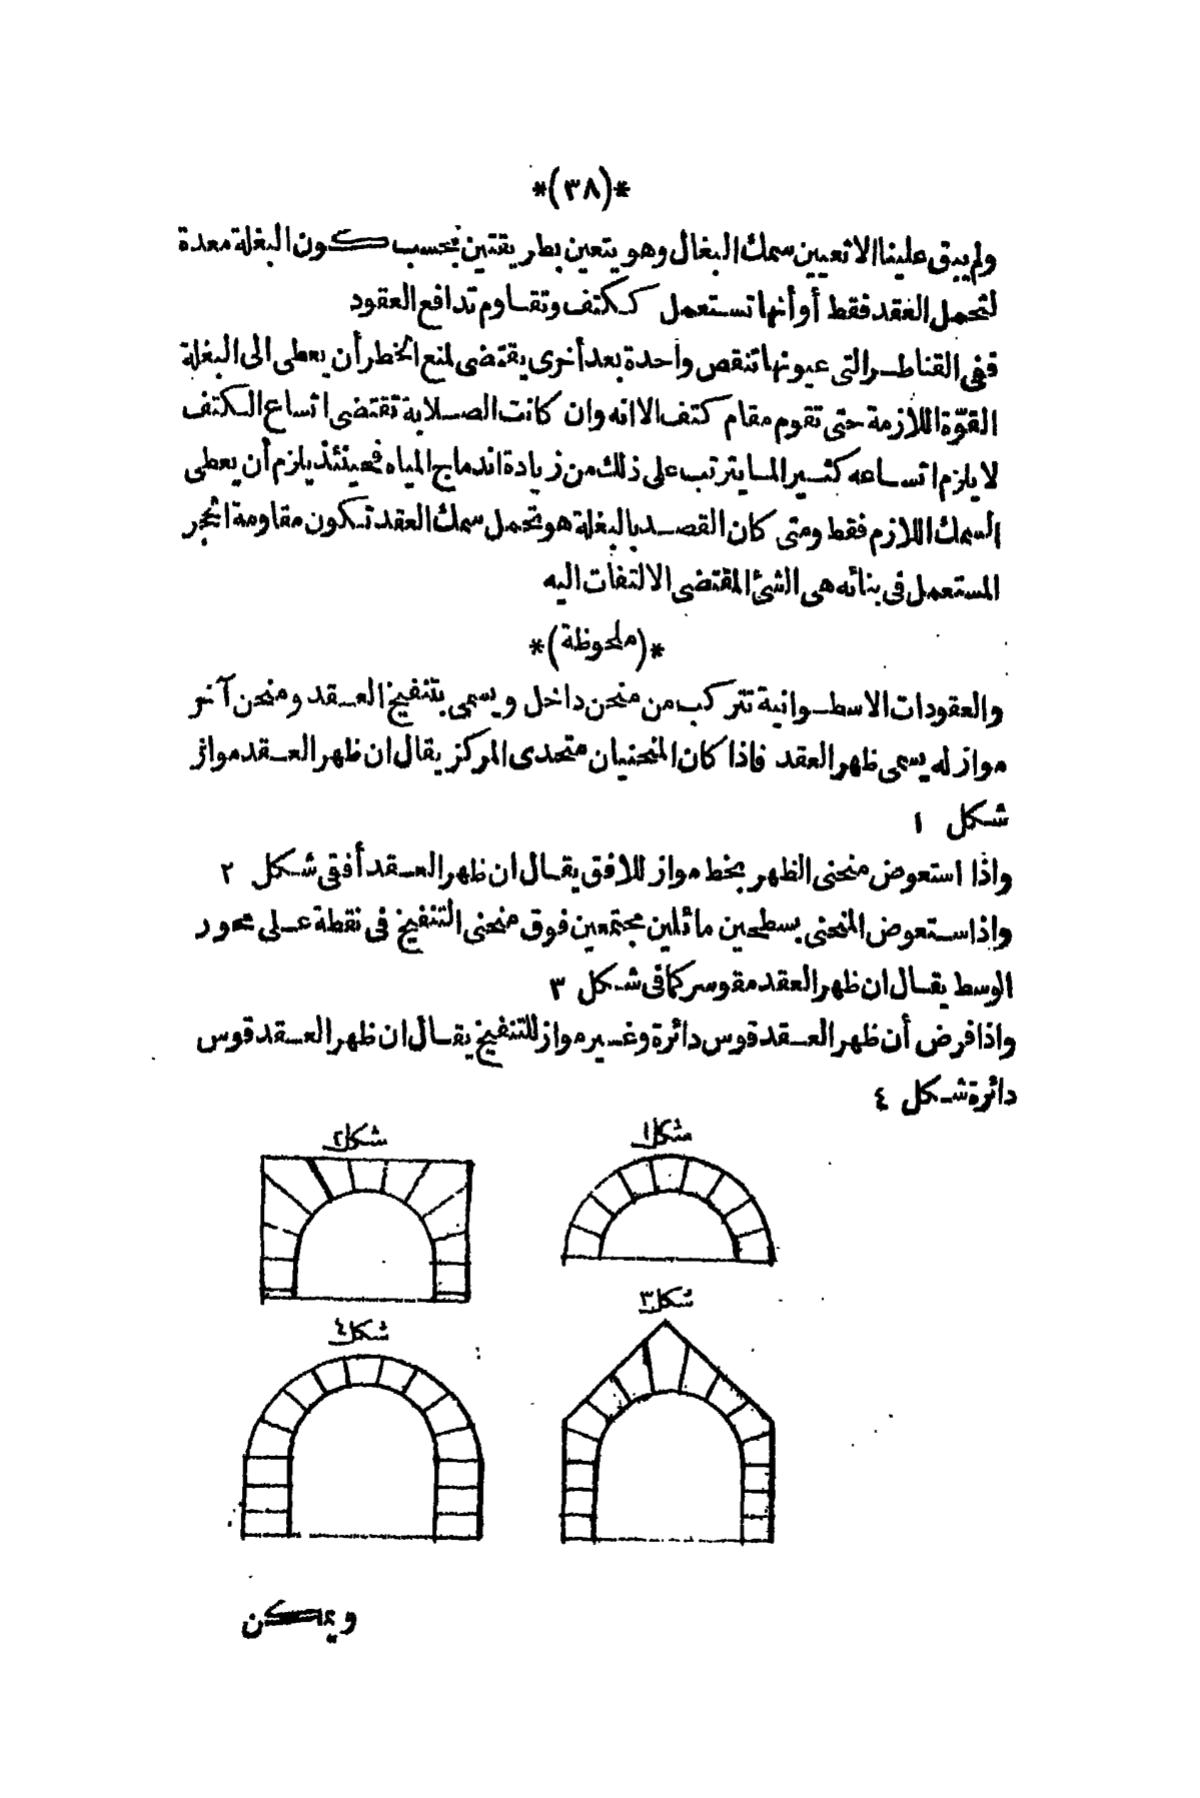 *(٣٨)*
ولم يبق علينا الا تعيين سمك البغال وهو يتعين بطريقتين بحسب كون البغلة معدة
لتحمل العقد فقط أو أنها تستعمل ككتف وتقاوم تدافع العقود
ففى القناطر التى عيونها تنقص واحدة بعد أخرى يقتضى لمنع الخطر أن يعطى الى البغلة
القوّة اللازمة حتى تقوم مقام كتف الا انه وان كانت الصلابة تقتضى اتساع الكتف
لا يلزم اتساعه كثيرا لما يترتب على ذلك من زيادة اندماج المياه فحينئذ يلزم أن يعطى
السمك اللازم فقط ومتى كان القصد بالبغلة هو تحمل سمك العقد تكون مقاومة الحجر
المستعمل فى بنائه هى الشئ المقتضى الالتفات اليه
*(ملحوظة)*
والعقودات الاسطوانية تتركب من منحن داخل ويسمى بتنفيخ العقد ومنحن آخر
مواز له يسمى ظهر العقد فاذا كان المنحنيان متحدى المركز يقال ان ظهر العقد مواز
شكل ١
واذا استعوض منحنى الظهر بخط مواز للافق يقال ان ظهر العقد أفقى شكل ٢
واذا استعوض المنحنى بسطحين مائلين مجتمعين فوق منحنى التنفيخ فى نقطة على محور
الوسط يقال ان ظهر العقد مقوسر كما فى شكل ٣
واذا فرض أن ظهر العقد قوس دائرة وغير مواز للتنفيخ يقال ان ظهر العقد قوس
دائرة شكل ٤
شكل ١
شكل ٢
شكل ٣
شكل ٤
ويمكن